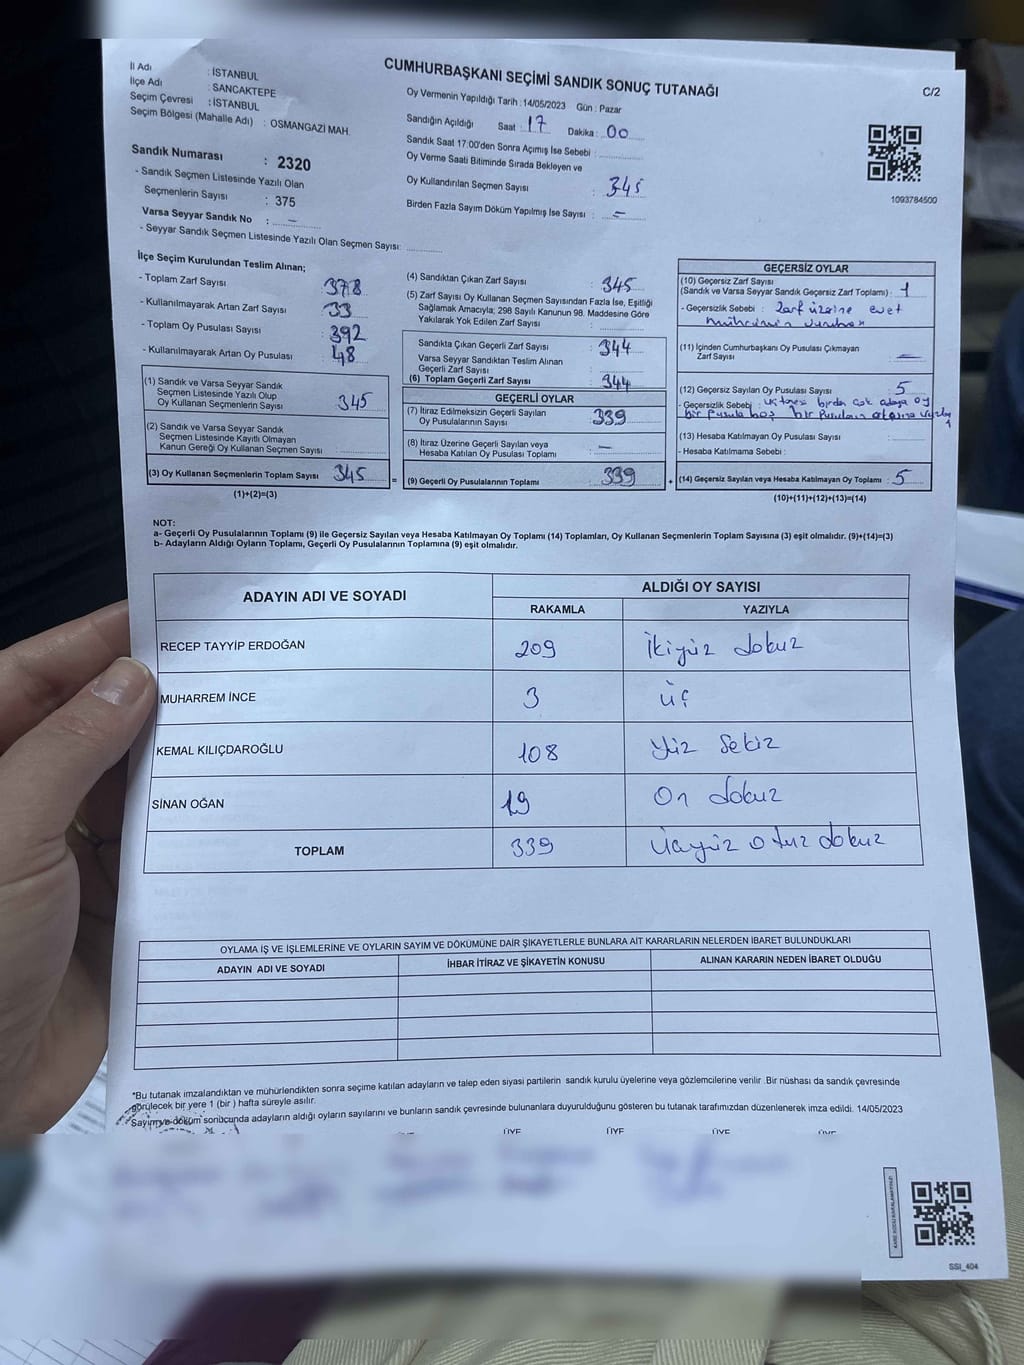 CUMHURBAŞKANI SEÇİMİ SANDIK SONUÇ TUTANAĞI
C/2
İl Adı : İSTANBUL
İlçe Adı : SANCAKTEPE
Seçim Çevresi : İSTANBUL
Seçim Bölgesi (Mahalle Adı) : OSMANGAZİ MAH.
Sandık Numarası : 2320
- Sandık Seçmen Listesinde Yazılı Olan
Seçmenlerin Sayısı : 375
Varsa Seyyar Sandık No : –
- Seyyar Sandık Seçmen Listesinde Yazılı Olan Seçmen Sayısı:
Oy Vermenin Yapıldığı Tarih : 14/05/2023 Gün : Pazar
Sandığın Açıldığı Saat : 17 Dakika : 00
Sandık Saat 17:00'den Sonra Açımış İse Sebebi :
Oy Verme Saali Bitiminde Sırada Bekleyen ve
Oy Kullandırılan Seçmen Sayısı : 345
Birden Fazla Sayım Döküm Yapılmış İse Sayısı : –
1093784500
İlçe Seçim Kurulundan Teslim Alınan;
- Toplam Zarf Sayısı 378
- Kullanılmayarak Artan Zarf Sayısı 33
- Toplam Oy Pusulası Sayısı 392
- Kullanılmayarak Artan Oy Pusulası 48
(1) Sandık ve Varsa Seyyar Sandık
Seçmen Listesinde Yazılı Olup
Oy Kullanan Seçmenlerin Sayısı 345
(2) Sandık ve Varsa Seyyar Sandık
Seçmen Listesinde Kayıtlı Olmayan
Kanun Gereği Oy Kullanan Seçmen Sayısı
(3) Oy Kullanan Seçmenlerin Toplam Sayısı 345 =
(1)+(2)=(3)
(4) Sandıktan Çıkan Zarf Sayısı : 345
(5) Zarf Sayısı Oy Kullanan Seçmen Sayısından Fazla İse, Eşitliği
Sağlamak Amacıyla; 298 Sayılı Kanunun 98. Maddesine Göre
Yakılarak Yok Edilen Zarf Sayısı :
Sandıkta Çıkan Geçerli Zarf Sayısı : 344
Varsa Seyyar Sandıktan Teslim Alınan
Geçerli Zarf Sayısı :
(6) Toplam Geçerli Zarf Sayısı : 344
GEÇERLİ OYLAR
(7) İtiraz Edilmeksizin Geçerli Sayılan
Oy Pusulalarının Sayısı : 339
(8) İtiraz Üzerine Geçerli Sayılan veya
Hesaba Katılan Oy Pusulası Toplamı : –
(9) Geçerli Oy Pusulalarının Toplamı : 339 +
GEÇERSİZ OYLAR
(10) Geçersiz Zarf Sayısı
(Sandık ve Varsa Seyyar Sandık Geçersiz Zarf Toplamı) : 1
- Geçersizlik Sebebi : Zarf üzerine evet
(11) İçinden Cumhurbaşkanı Oy Pusulası Çıkmayan
Zarf Sayısı : –
(12) Geçersiz Sayılan Oy Pusulası Sayısı : 5
- Geçersizlik Sebebi :
bir pusula boş bir
(13) Hesaba Katılmayan Oy Pusulası Sayısı :
- Hesaba Katılmama Sebebi :
(14) Geçersiz Sayılan veya Hesaba Katılmayan Oy Toplamı : 5
(10)+(11)+(12)+(13)=(14)
NOT:
a- Geçerli Oy Pusulalarının Toplamı (9) ile Geçersiz Sayılan veya Hesaba Katılmayan Oy Toplamı (14) Toplamları, Oy Kullanan Seçmenlerin Toplam Sayısına (3) eşit olmalıdır. (9)+(14)=(3)
b- Adayların Aldığı Oyların Toplamı, Geçerli Oy Pusulalarının Toplamına (9) eşit olmalıdır.
ADAYIN ADI VE SOYADI ALDIĞI OY SAYISI
RAKAMLA YAZIYLA
RECEP TAYYİP ERDOĞAN 209 İkiyüz dokuz
MUHARREM İNCE 3 üç
KEMAL KILIÇDAROĞLU 108 Yüz Sekiz
SİNAN OĞAN 19 On dokuz
TOPLAM 339 Üçyüz otuz dokuz
OYLAMA İŞ VE İŞLEMLERİNE VE OYLARIN SAYIM VE DÖKÜMÜNE DAİR ŞİKAYETLERLE BUNLARA AİT KARARLARIN NELERDEN İBARET BULUNDUKLARI
ADAYIN ADI VE SOYADI İHBAR İTİRAZ VE ŞİKAYETİN KONUSU ALINAN KARARIN NEDEN İBARET OLDUĞU
*Bu tutanak imzalandıktan ve mühürlendikten sonra seçime katılan adayların ve talep eden siyasi partilerin sandık kurulu üyelerine veya gözlemcilerine verilir .Bir nüshası da sandık çevresinde
görülecek bir yere 1 (bir ) hafta süreyle asılır.
Sayım ve döküm sonucunda adayların aldığı oyların sayılarını ve bunların sandık çevresinde bulunanlara duyurulduğunu gösteren bu tutanak tarafımızdan düzenlenerek imza edildi. 14/05/2023
ÜYE ÜYE ÜYE ÜYE
SSI_404